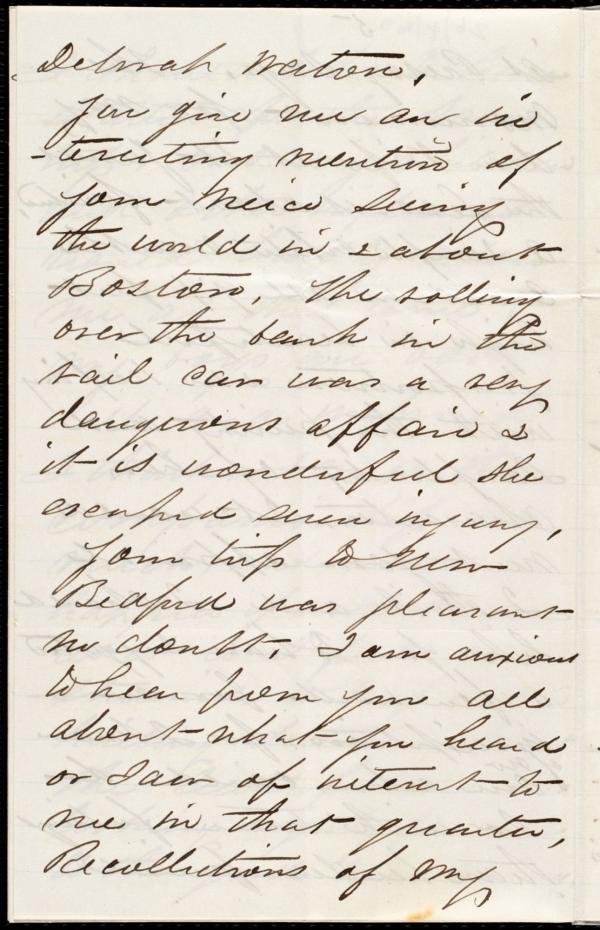 Deborah Weston.
You give me an in
-teresting mention of
your Neice seeing
the world in & about
Boston. The rolling
over the bank in the
rail car was a very
dangerous affair &
it is wonderful she
escaped severe injury.
Your trip to New
Bedford was pleasant
no doubt. I am anxious
to hear from you all
about what you heard
or saw of interest to
me in that quarter.
Recollections of my